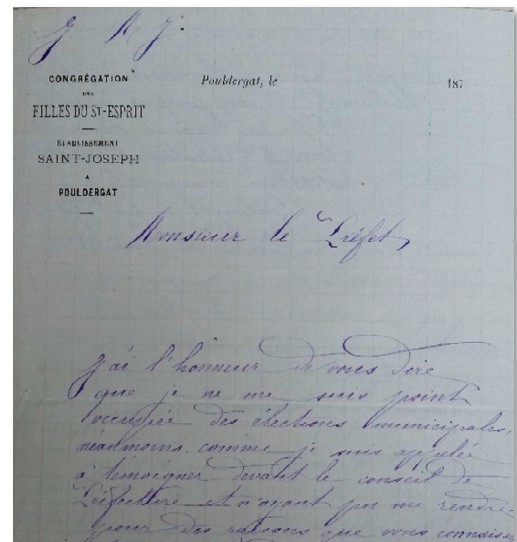 J M J.
CONGRÉGATION
DES
FILLES DU ST-ESPRIT
ÉTABLISSEMENT
SAINT-JOSEPH
A
POULDERGAT
Pouldergat, le 187
Monsieur le Préfet,
J'ai l'honneur de vous dire
que je ne me suis point
occupée des élections municipales,
néanmoins comme je suis appelée
à temoigner devant le conseil de
Préfecture et n'ayant pu me rendre
pour des raisons que vous connaissez